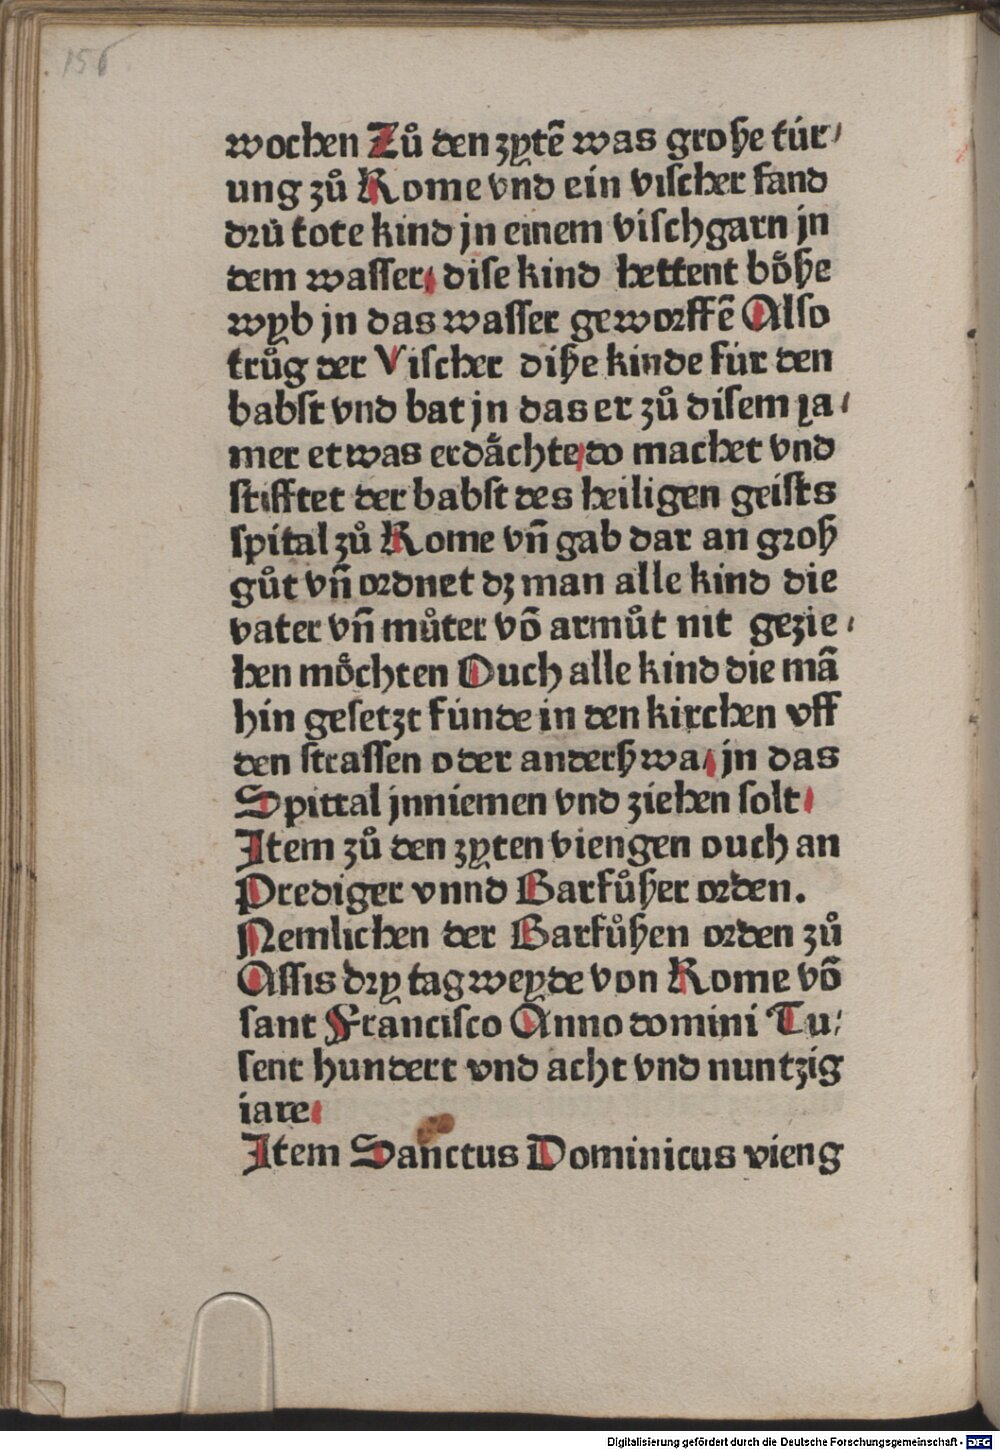 156
wochen Zů den zytē was große túr⸗
ung zů Rome vnd ein viſcher fand
drú tote kind jn einem viſchgarn jn
dem waſſer/ diſe kind hettent bo̊ße
wyb jn das waſſer geworffē Alſo
trůg der Viſcher diße kinde fúr den
babſt vnd bat jn das er zů diſem ia⸗
mer etwas erdåchte/do machet vnd
ſtifftet der babſt des heiligen geiſts
ſpital zů Rome vn̄ gab dar an groß
gůt vn̄ ordnet dz man alle kind die
vater vn̄ můter vō armůt nit gezie⸗
hen mo̊chten Ouch alle kind die mā
hin geſetzt fúnde in den kirchen vff
den ſtraſſen oder anderßwa/ jn das
Spittal jnniemen vnd ziehen ſolt/
Item zů den zyten viengen ouch an
Prediger vnnd Barfůßer orden.
Nemlichen der Barfůßen orden zů
Aſſis dry tagweyde von Rome vō
ſant Franciſco Anno domini Tu⸗
ſent hundert vnd acht vnd nuntzig
iare/
Item Sanctus Dominicus vieng
Digitalisierung gefördert durch die Deutsche Forschungsgemeinschaft - DFG